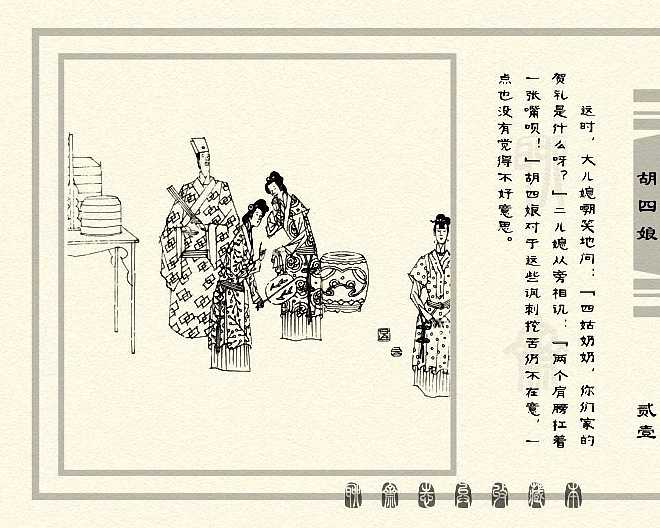 这时，大儿媳嘲笑地问：“四姑奶奶，你们家的
贺礼是什么呀？”二儿媳从旁相讥：“两个肩膀扛着
一张嘴呗！”胡四娘对于这些讽刺挖苦仍不在意，一
点也没有觉得不好意思。
胡四娘
贰壹
聊斋志异收藏本